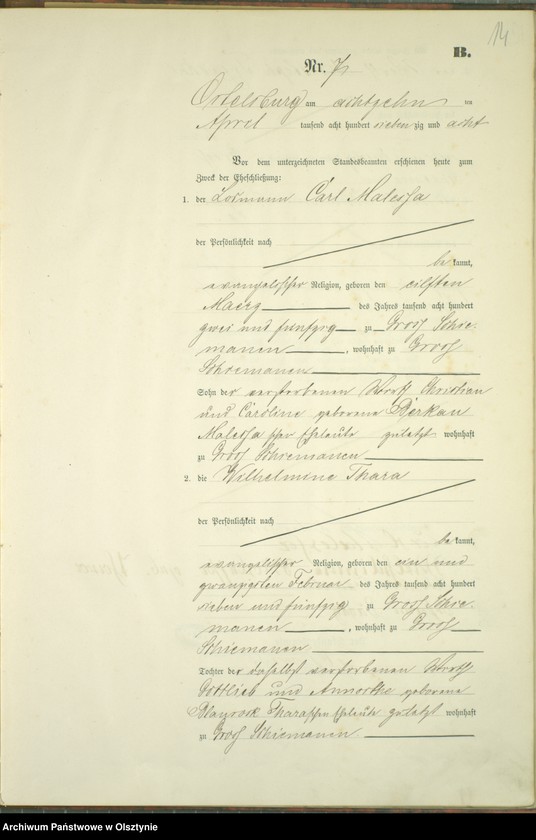 14
B.
Nr.
Ortelsburg am achtzehn ten
April tausend acht hundert siebenzig und acht
Vor dem unterzeichneten Standesbeamten erschienen heute zum
Zweck der Eheschließung:
1. der Losmann Carl Malessa
der Persönlichkeit nach
bekannt,
evangelischer Religion, geboren den eilften
Maerz des Jahres tausend acht hundert
zwei und fünfzig zu Gross Schie-
manen, wohnhaft zu Gross
Schiemanen
Sohn der verstorbenen Wirth Christian
und Caroline geborene
Malessaschen Eheleute zuletzt wohnhaft
zu Gross Schiemanen
2. die Wilhelmine Thara
der Persönlichkeit nach
bekannt,
evangelischer Religion, geboren den ein und
zwanzigsten Februar des Jahres tausend acht hundert
sieben und fünfzig zu Gross Schie-
manen, wohnhaft zu Gross
Schiemanen
Tochter der daselbst verstorbenen Wirth
Gottlieb und geborene
Tharaschen Eheleute zuletzt wohnhaft
zu Gross Schiemanen
Archiwum Państwowe w Olsztynie